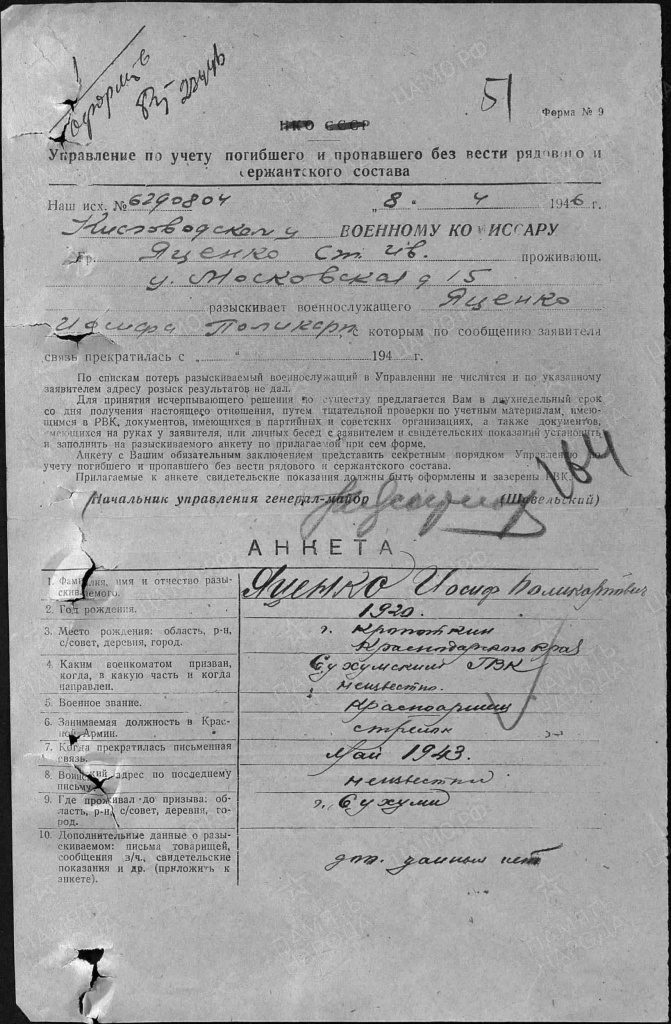 оформ
22/4
51
Форма № 9
НКО СССР
Управление по учету погибшего и пропавшего без вести рядового и
сержантского состава
Наш исх. № 6290804 „8. 4 1946 г.
Кисловодскому ВОЕННОМУ КОМИССАРУ
Гр. Яценко Ст. Ив. проживающ.
у. Московская д 15
разыскивает военнослужащего Яценко
Иосифа Поликарп с которым по сообщению заявителя
связь прекратилась с „ “ 194 г.
По спискам потерь разыскиваемый военнослужащий в Управлении не числится и по указанному
заявителем адресу розыск результатов не дал.
Для принятия исчерпывающего решения по существу предлагается Вам в двухнедельный срок
со дня получения настоящего отношения, путем тщательной проверки по учетным материалам, имею-
щимся в РВК, документов, имеющихся в партийных и советских организациях, а также документов,
имеющихся на руках у заявителя, или личных бесед с заявителем и свидетельских показаний установить
и заполнить на разыскиваемого анкету по прилагаемой при сем форме.
Анкету с Вашим обязательным заключением представить секретным порядком Управлению по
учету погибшего и пропавшего без вести рядового и сержантского состава.
Прилагаемые к анкете свидетельские показания должны быть оформлены и заверены РВК.
164
(Начальник управления генерал-майор (Шавельский)
АНКЕТА
1. Фамилия, имя и отчество разы-
скиваемого.
Яценко Иосиф Поликарпович
2. Год рождения.
1920.
3. Место рождения: область, р-н,
с/совет, деревня, город.
г. Кропоткин
Краснодарского края
4. Каким военкоматом призван,
когда, в какую часть и когда
направлен.
Сухумский ГВК
неизвестно.
5. Военное звание.
Красноармеец
6. Занимаемая должность в Крас-
ной Армии.
стрелок
7. Когда прекратилась письменная
связь.
Май 1943.
8. Воинский адрес по последнему
письму
неизвестно
9. Где проживал до призыва: об-
ласть, р-н, с/совет, деревня, го-
род.
г. Сухуми
10. Дополнительные данные о разы-
скиваемом: письма товарищей,
сообщения в/ч., свидетельские
показания и др. (приложить к
анкете).
доп. данных нет